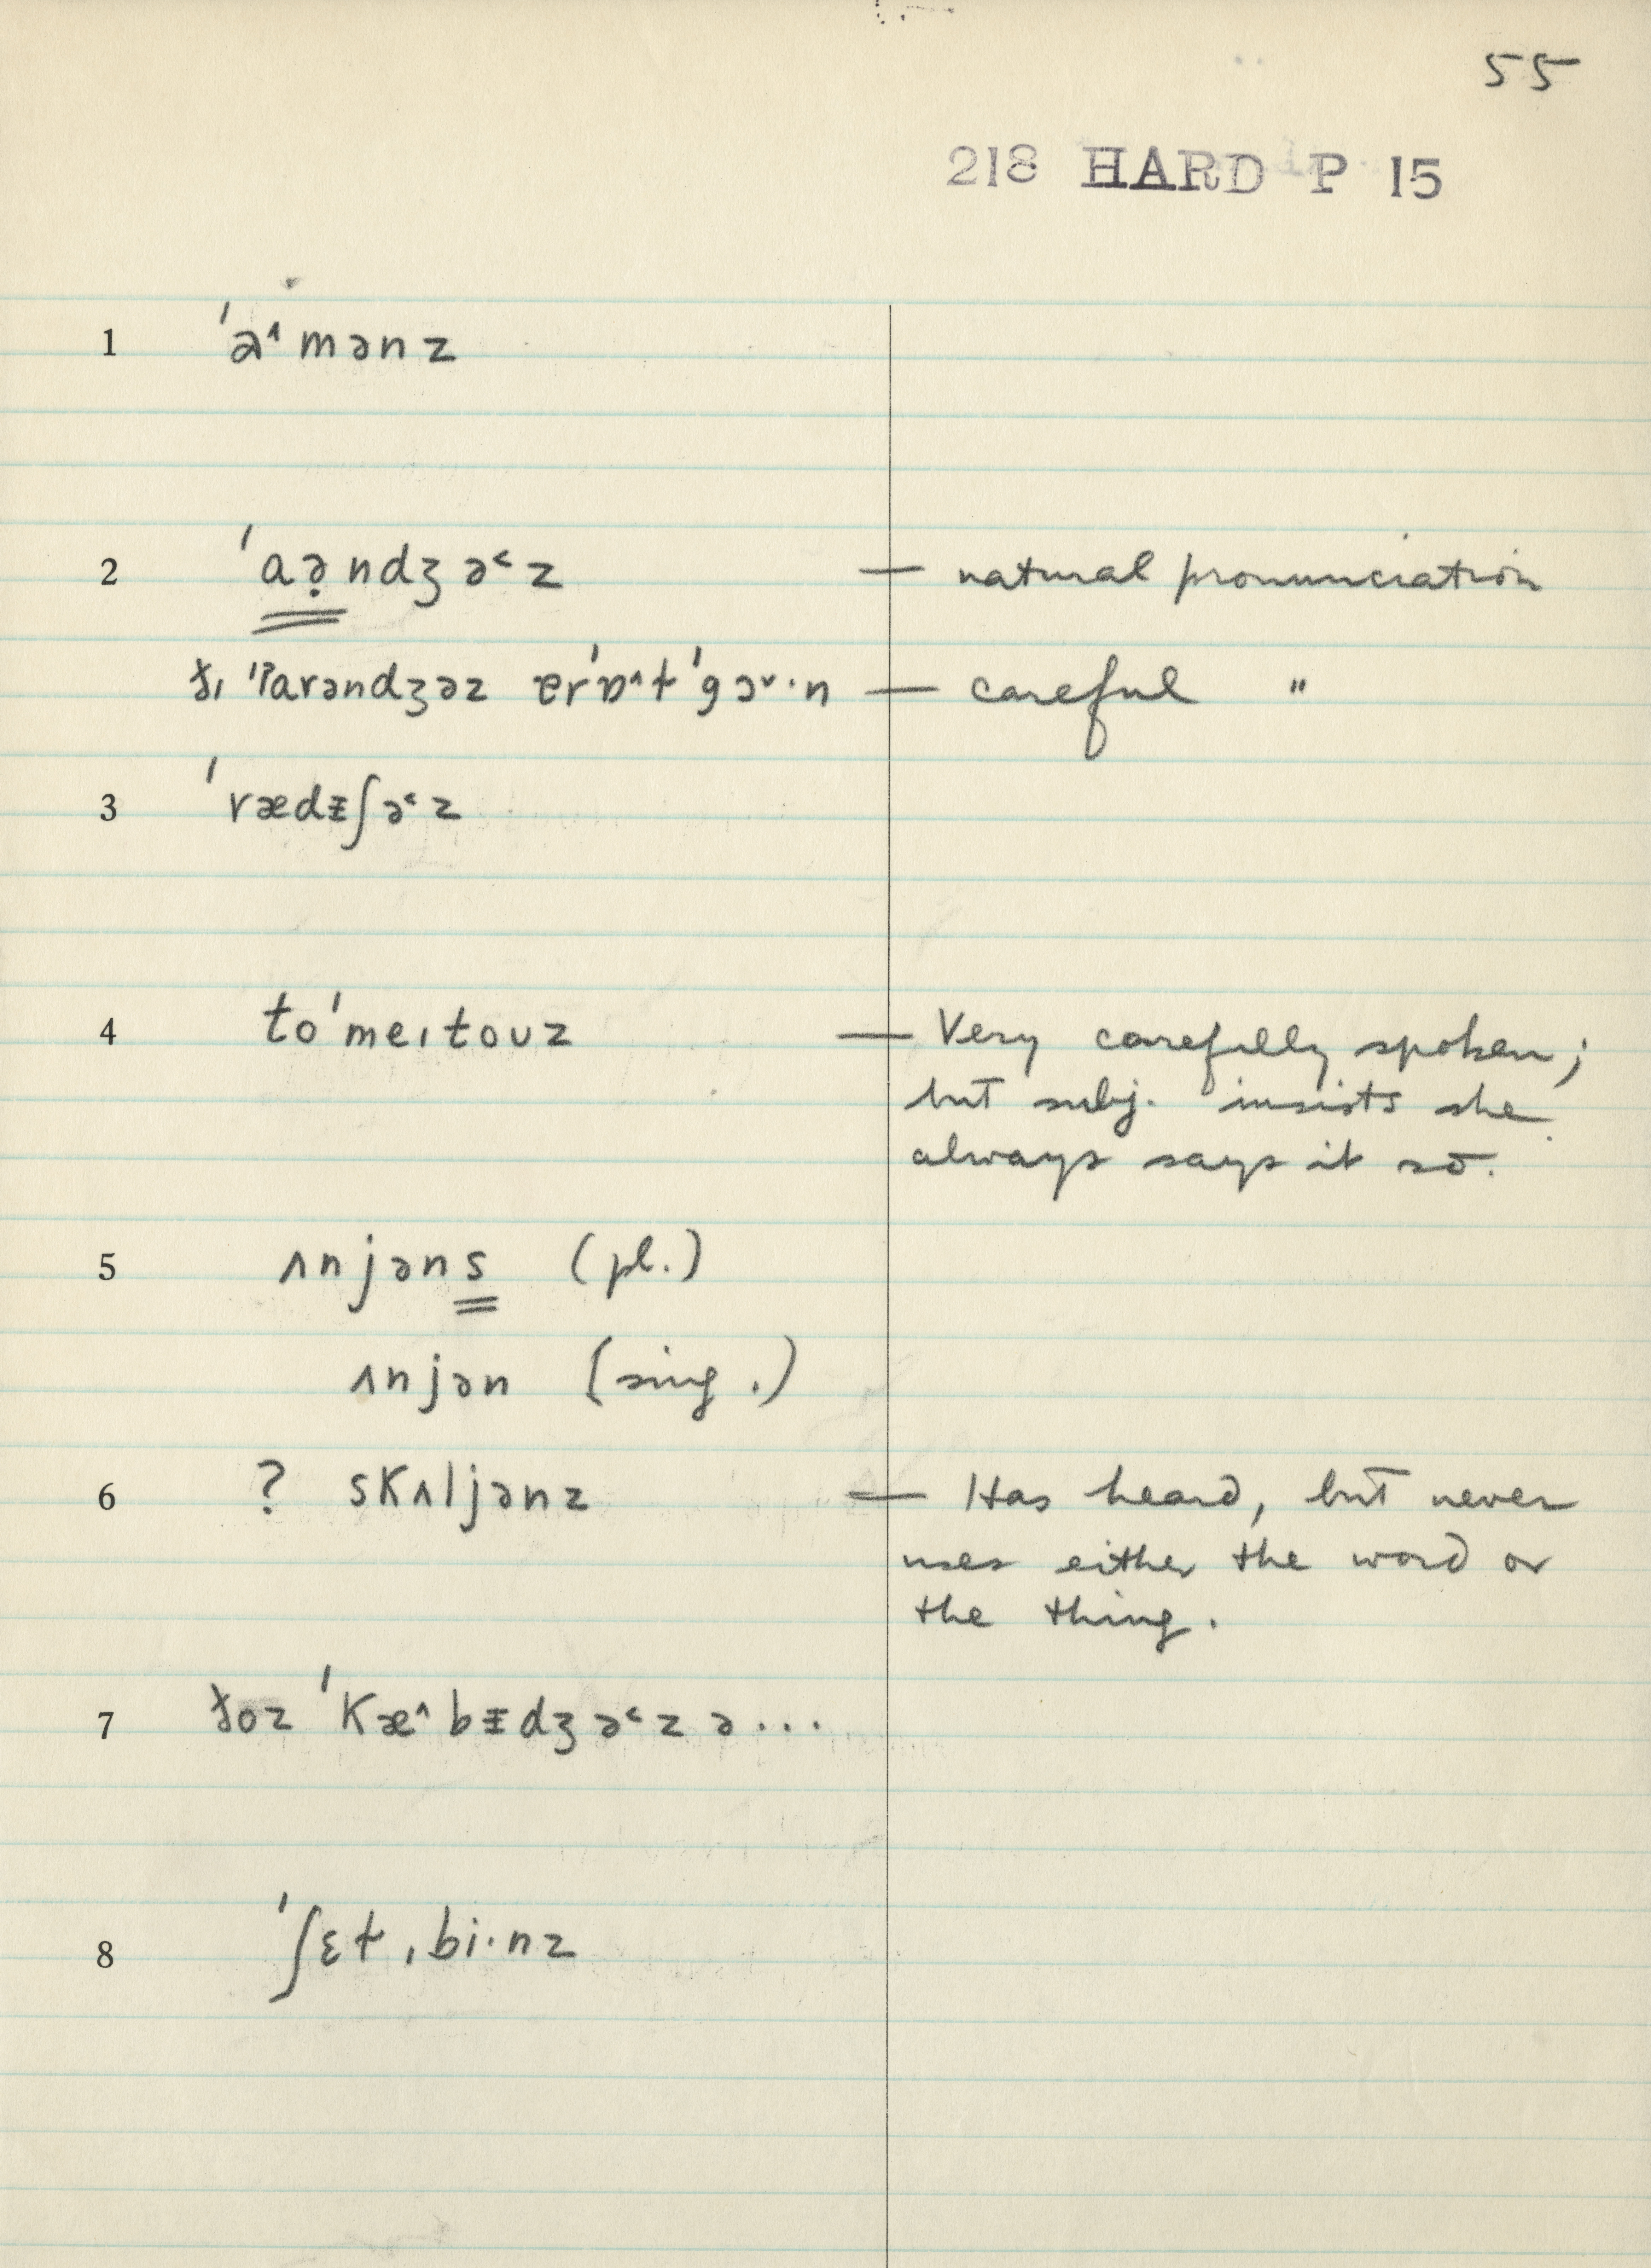 55
218 HARD P 15
1 ˈa˄mənz
2 ˈaə̣ndʒə˂z — natural pronunciation
ðɪ ˈʔarəndʒəz ɐrˈɒ˄t ˈgɔ˅·n — careful "
3 ˈrædᵻʃə˂z
4 toˈmeɪtoʊz — Very carefully spoken;
but subj. insists she
always says it so.
5 ʌnjəns (pl.)
ʌnjən (sing.)
6 ? skʌljənz — Has heard, but never
uses either the word or
the thing.
7 ðoz ˈkæ˄bᵻdʒə˂z ə...
8 ˈʃɛt ˌbi·nz